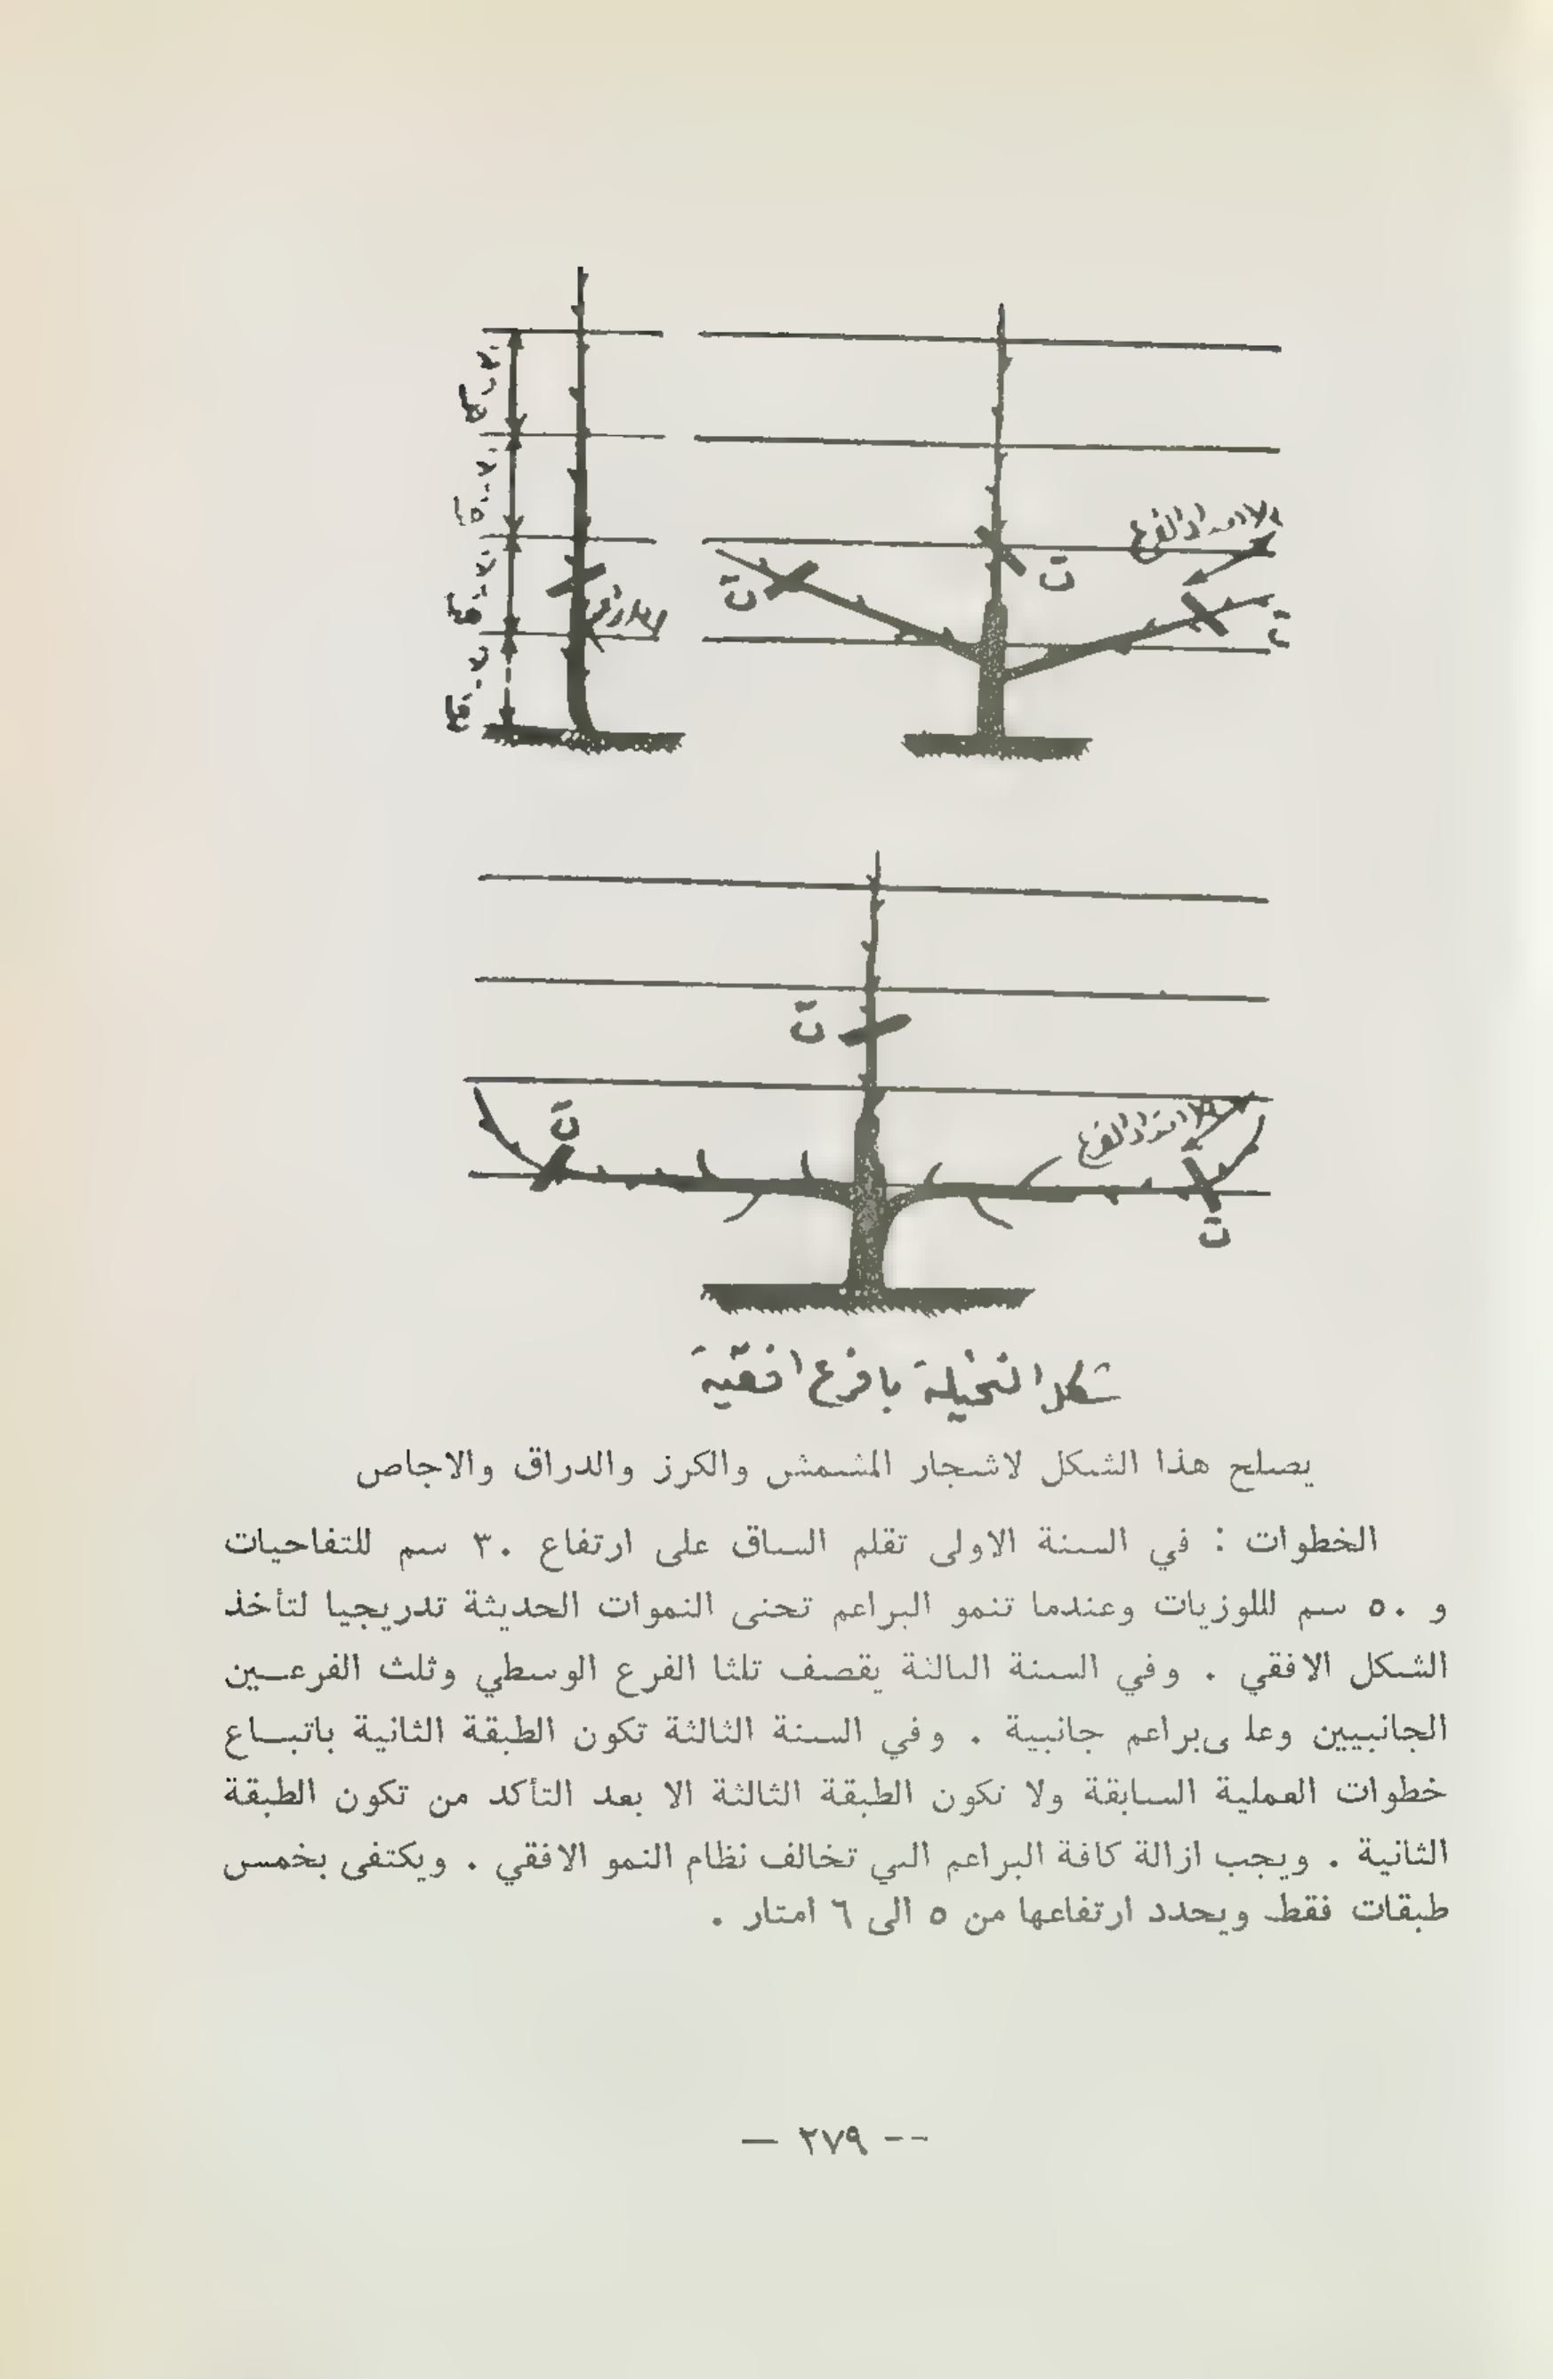 ت
ت
ت
لامتداد الفرع
ت
ت
لامتداد الفرع
ت
شكل النخيلة بافرع افقية
يصلح هذا الشكل لاشجار المشمش والكرز والدراق والاجاص
الخطوات : في السنة الاولى تقلم الساق على ارتفاع ٣٠ سم للتفاحيات
و ٥٠ سم لللوزيات وعندما تنمو البراعم تحنى النموات الحديثة تدريجيا لتأخذ
الشكل الافقي . وفي السنة الثالثة يقصف تلثا الفرع الوسطي وثلث الفرعــين
الجانبيين وعلى براعم جانبية . وفي السنة الثالثة تكون الطبقة الثانية باتبــاع
خطوات العملية السابقة ولا تكون الطبقة الثالثة الا بعد التأكد من تكون الطبقة
الثانية . ويجب ازالة كافة البراعم التي تخالف نظام النمو الافقي . ويكتفى بخمس
طبقات فقط ويحدد ارتفاعها من ٥ الى ٦ امتار .
— ٢٧٩ --